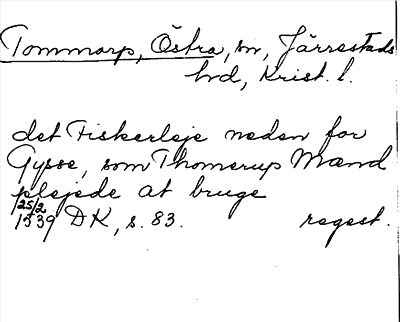 Tommarp, Östra, sn, Järrestads
hd, Krist. l.
det Fiskerleje neden for
Gysse, som Thomerup Mænd
plejede at bruge
25/2
1539 DK, s. 83. regest.